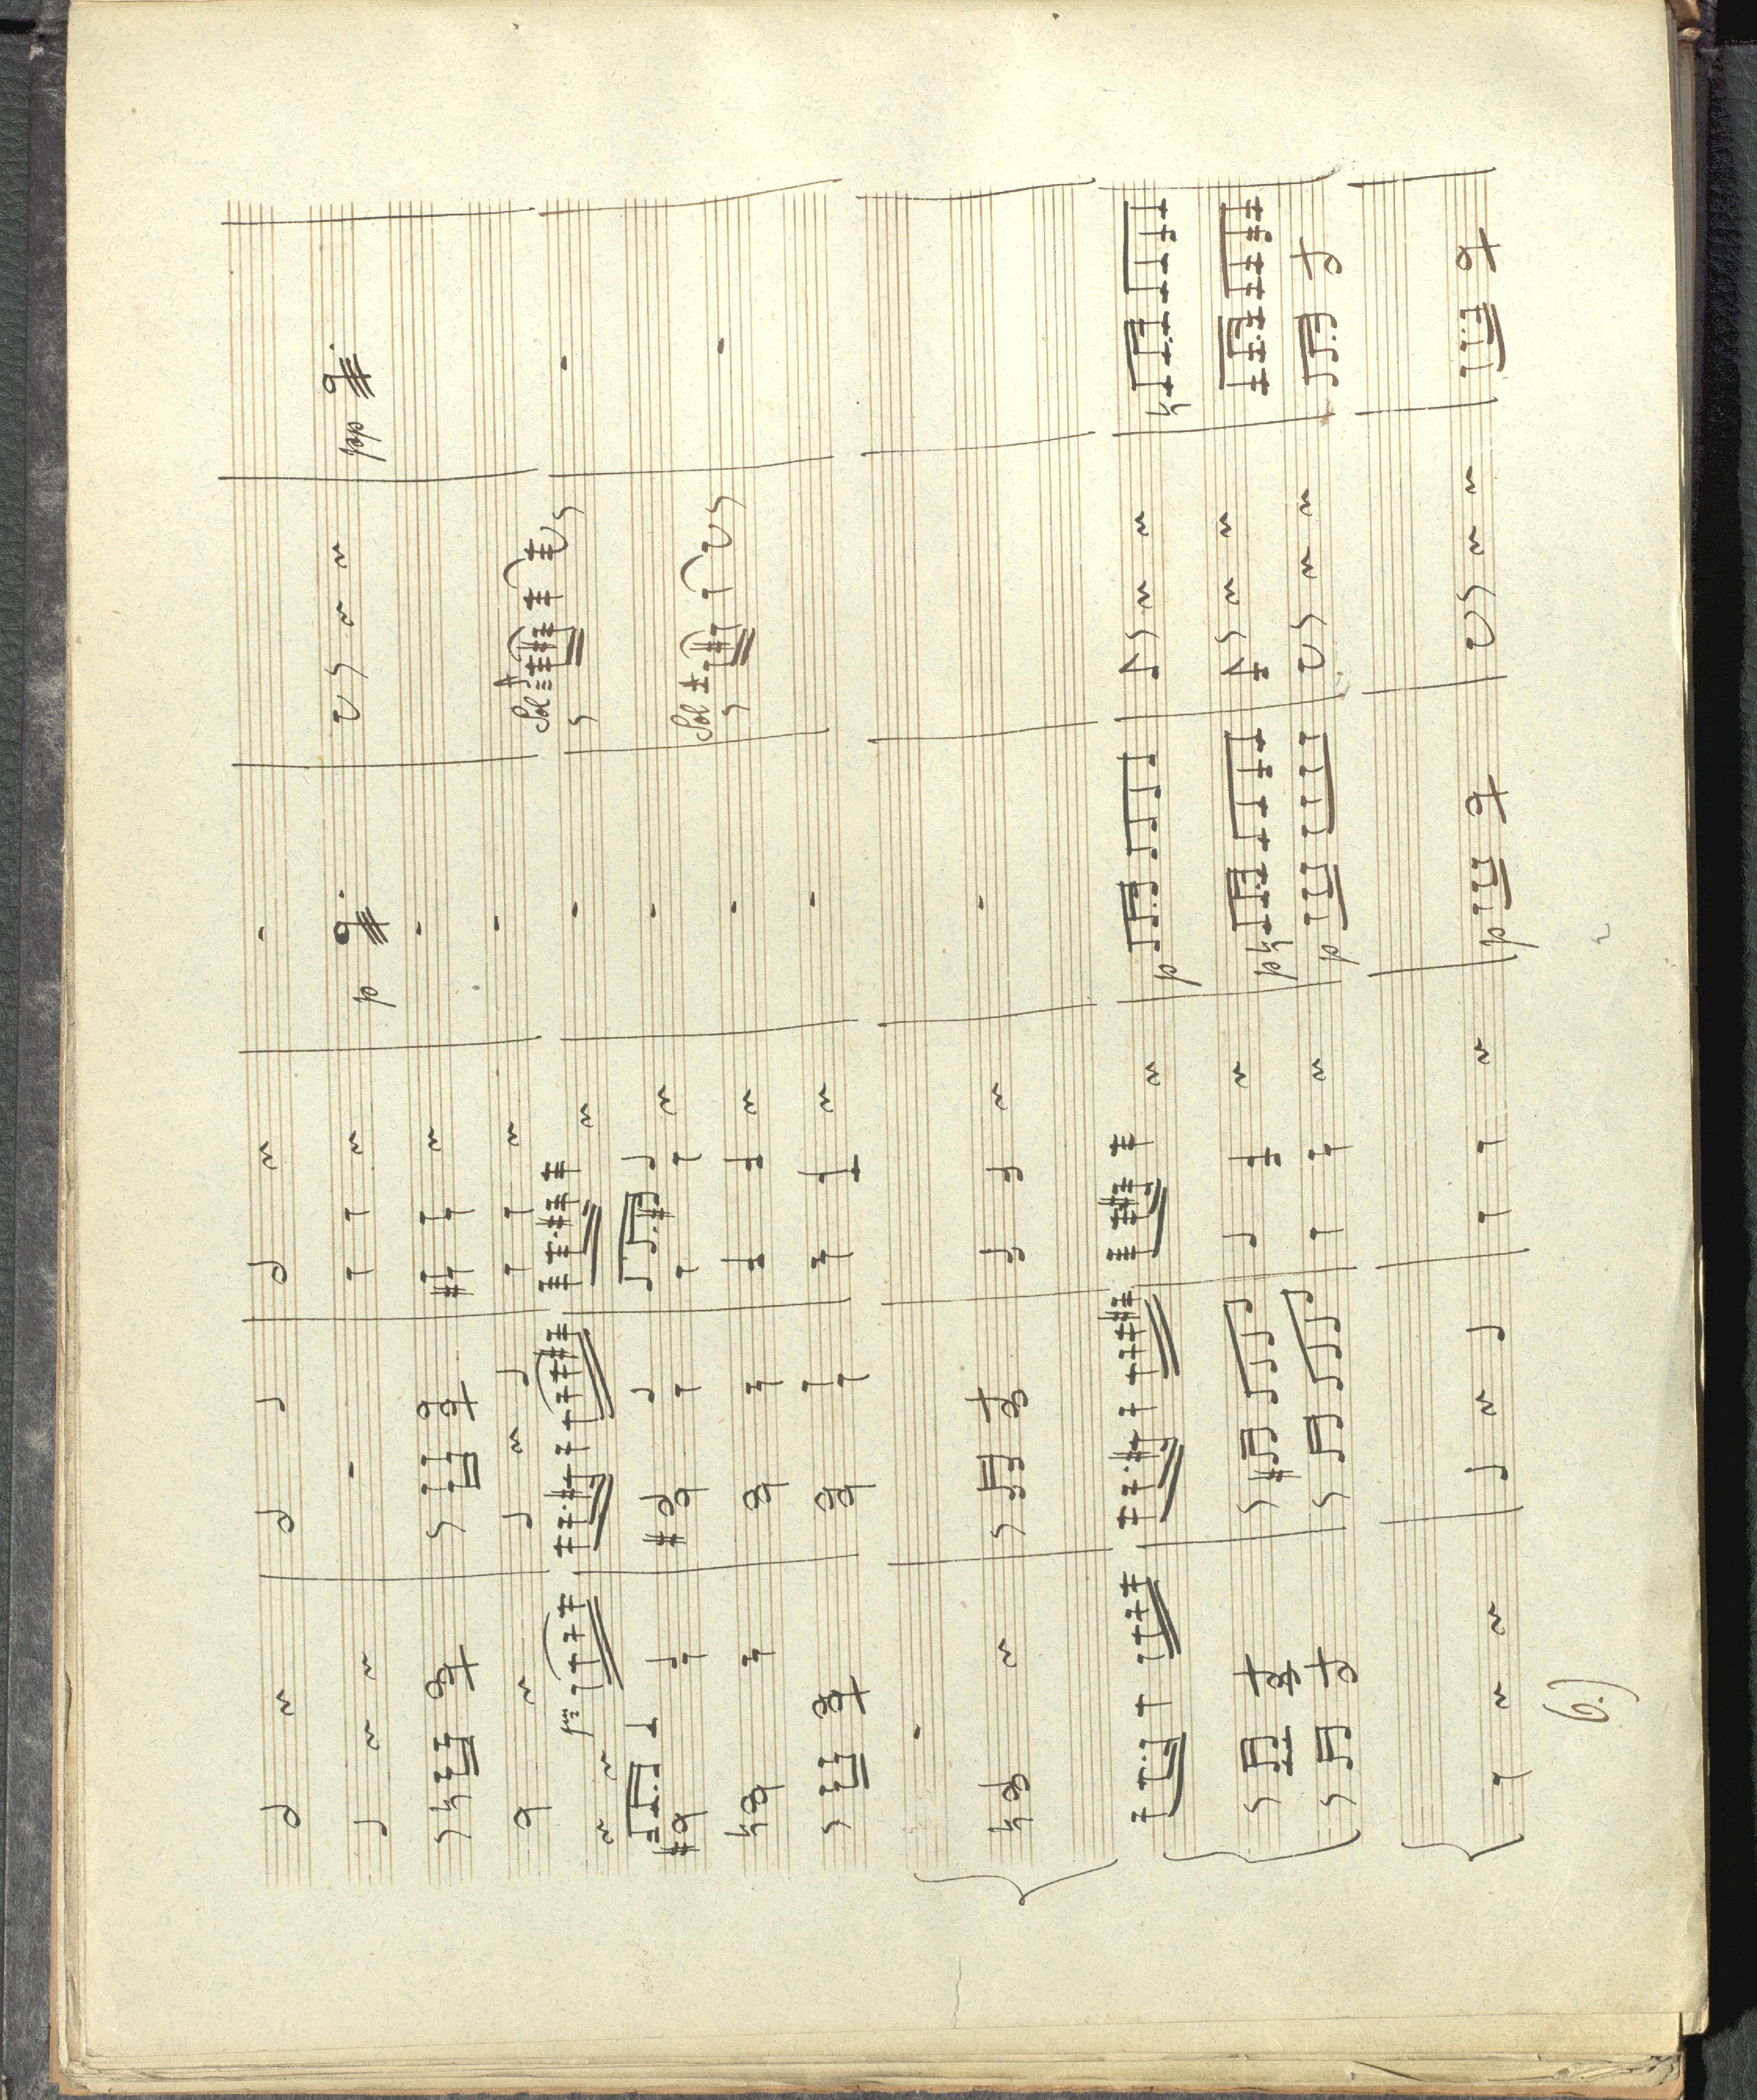 p pp
Sol
Sol
p
p
p
p
6.)